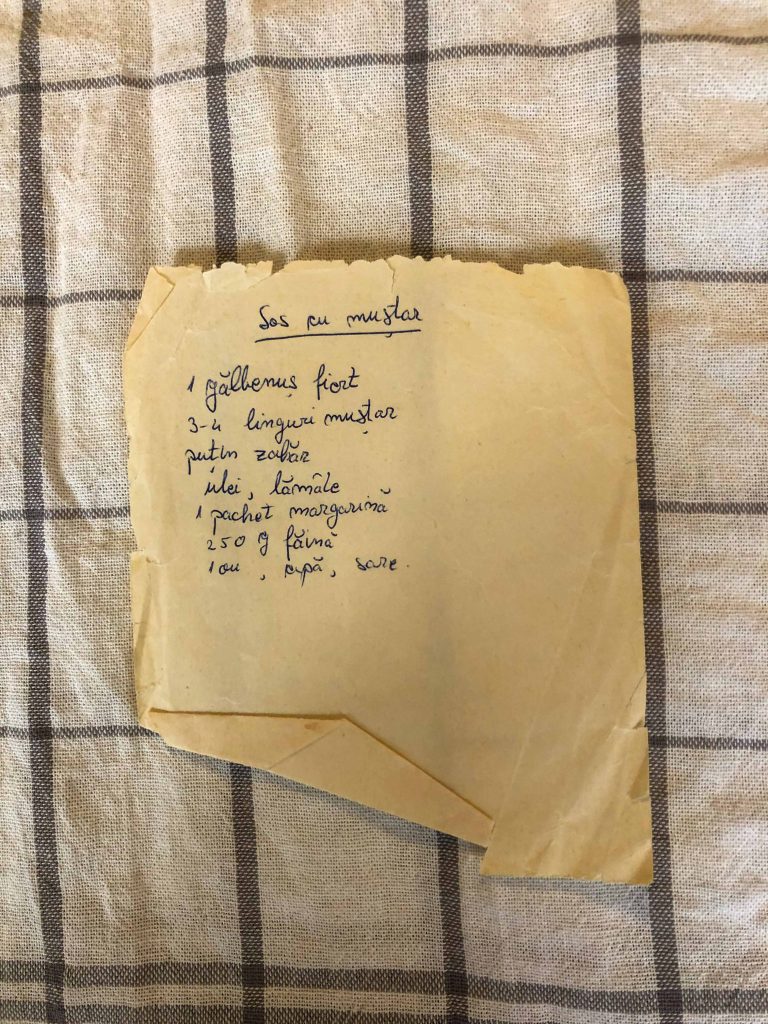 Sos cu muștar
1 gălbenuș fiert
3-4 linguri muștar
puțin zahăr
ulei, lămâie
1 pachet margarină
250 g făină
1 ou, apă, sare.